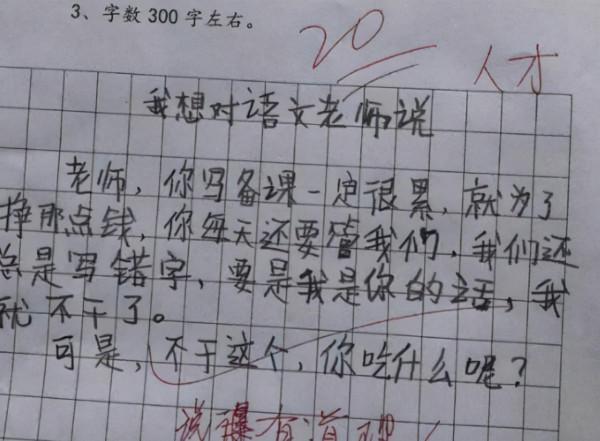 3、字数300字左右。
20
人才
我想对语文老师说
老师,你写备课一定很累,就为了
挣那点钱,你每天还要管我们,我们还
总是写错字,要是我是你的话,我
就不干了。
可是,不干这个,你吃什么呢?
说得有道理